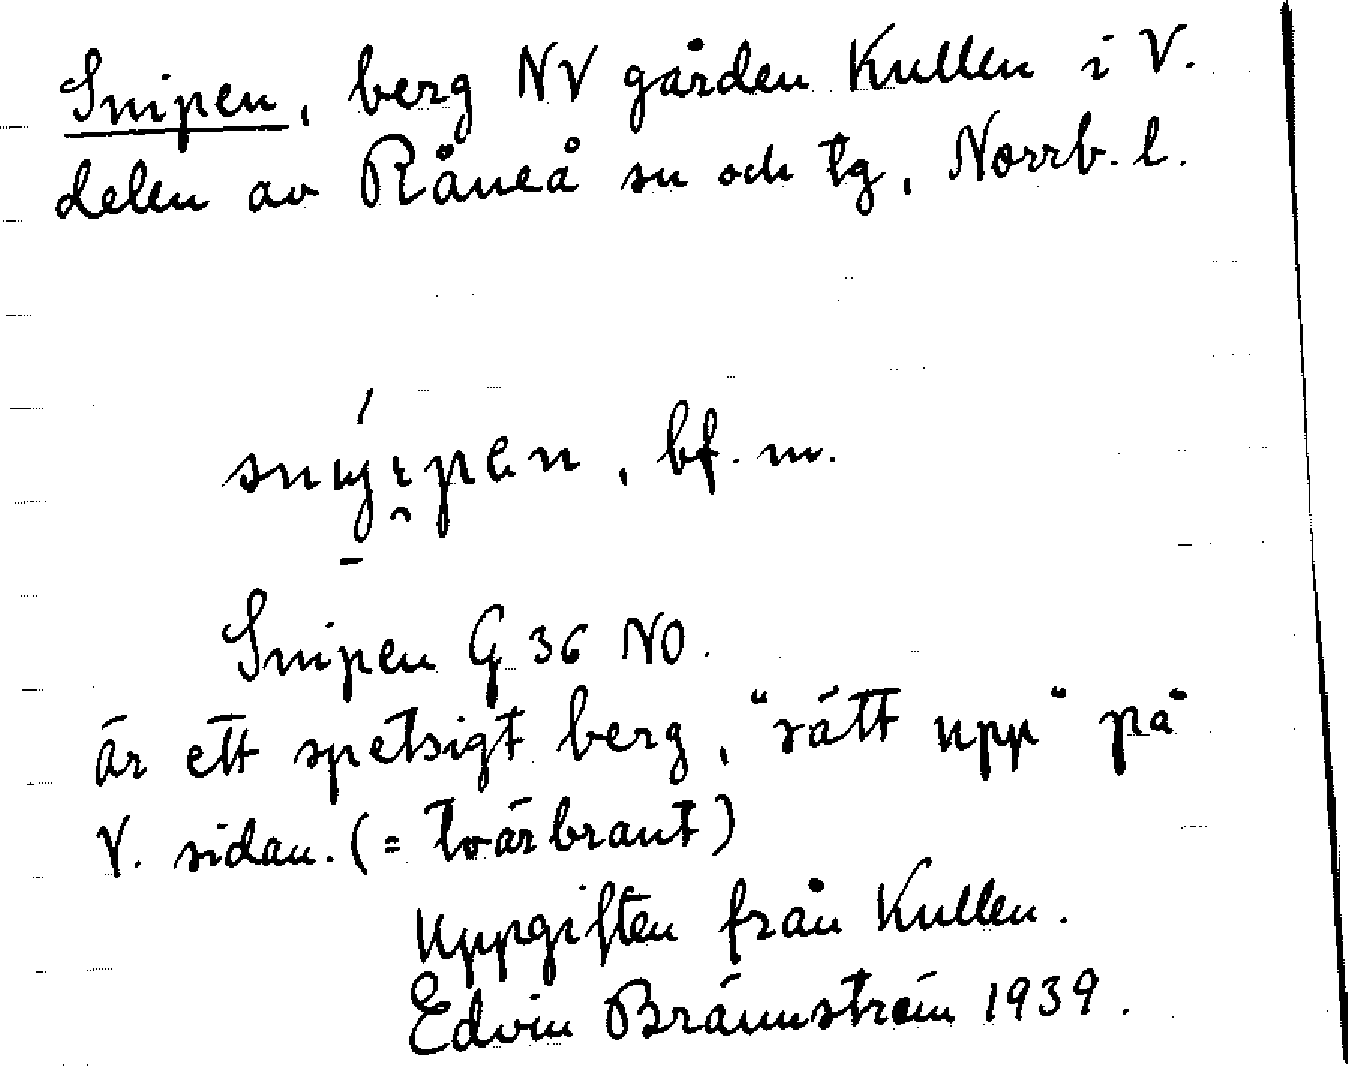 Snipen, berg NV gården Kullen i V.
delen av Råneå sn och tg, Norrb. l.
bf. m.
Snipen G 36 NO.
är ett spetsigt berg, "rätt upp" på
V. sidan. (= tvärbrant)
Uppgiften från Kullen.
Edvin Brännström 1939.